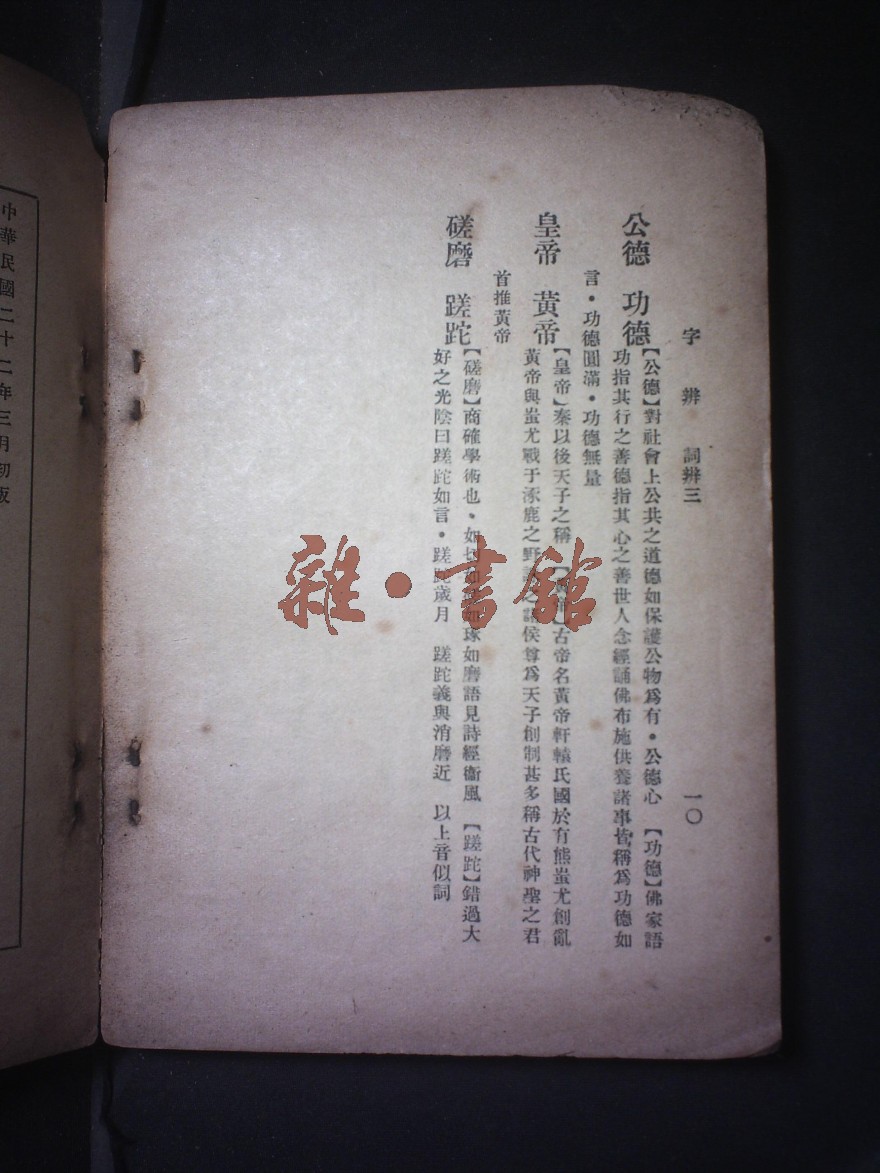 字辨 詞辨三 一〇
公德 功德【公德】對社會上公共之道德如保護公物爲有・公德心 【功德】佛家語
功指其行之善德指其心之善世人念經誦佛布施供養諸事皆稱爲功德如
言・功德圓滿・功德無量
皇帝 黃帝【皇帝】秦以後天子之稱 【黃帝】古帝名黃帝軒轅氏國於有熊蚩尤創亂
黃帝與蚩尤戰于涿鹿之野 之諸侯尊爲天子創制甚多稱古代神聖之君
首推黃帝
磋磨 蹉跎【磋磨】商確學術也、如切如磋如琢如磨語見詩經衞風 【蹉跎】錯過大
好之光陰曰蹉跎如言・蹉跎歲月 蹉跎義與消磨近 以上音似詞
中華民國二十二年三月初版
雜・書館